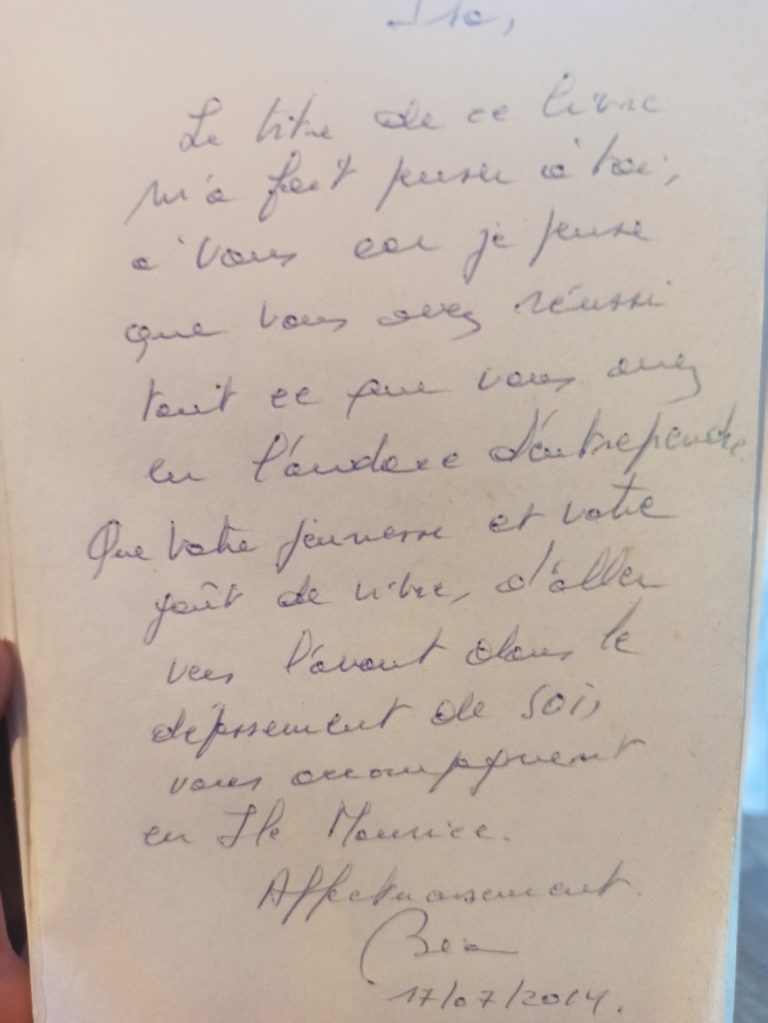 Isa,
Le titre de ce livre
m'a fait penser à toi,
à vous car je pense
que vous avez réussi
tout ce que vous avez
eu l'audace d'entreprendre
Que votre jeunesse et votre
goût de vivre, d'aller
vers l'avant dans le
dépassement de soi,
vous accompagnent
en Ile Maurice.
Affectueusement.
Bea
17/07/2014.